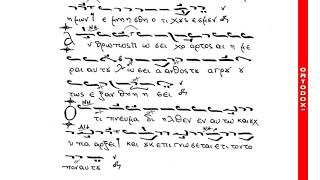 η μων ε μνη σθη ο τι χους ε σμεν
Α νθρωπος ω σει χο ρτος αι η με
ραι αυ του ω σει α νθος του α γρου ου
τως ε ξαν θη η σει
Ο τι πνευμα δι ηλθεν εν αυτω και ουχ
υ πα ρξει και ουκ ε πι γνω σεται ε τι τον το
πον αυτου
ORTODOX